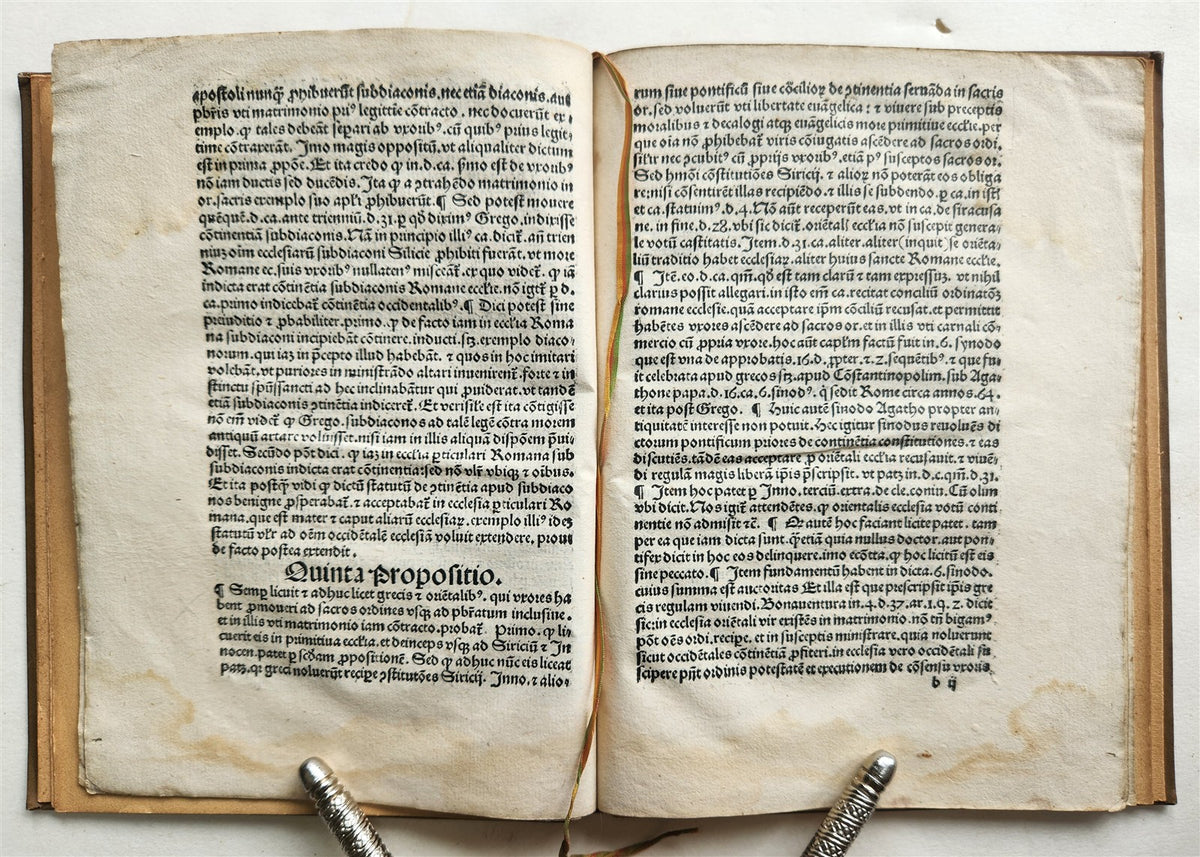 apostoli nunq̃ ꝓhibuerũt subdiaconis, nec etiã diaconis, aut
pbr̃is vti matrimonio priꝰ legittĩe cõtracto, nec docuerũt ex⸗
emplo, ꝙ tales debeãt seꝑari ab vxoribꝰ, cũ quibꝰ prius legit⸗
time cõtraxerãt. Imo magis oppositũ, vt aliqualiter dictum
est in prima ꝓpõne. Et ita credo ꝙ in.d.ca. ſermo est de vxoribꝰ
nõ iam ductis sed ducẽdis. Ita ꝙ a ꝯtrahẽdo matrimonio in
or.sacris exemplo suo apl̃i ꝓhibuerũt. ¶ Sed potest mouere
quẽquẽ.d.ca.ante trienniũ.d.31.ꝑ qḋ dirim̃ Grego.indixisse
continentiã subdiaconis. Nã in principio illiꝰ ca. dicit̃. añ trien
niuꝫ oĩm ecclesiarũ subdiaconi Silicie ꝓhibiti fuerãt, vt more
Romane ec.suis vxoribꝰ nullatenꝰ misceãt̃. ex quo videt̃. ꝙ iã
indicta erat cõtinẽtia subdiaconis Romane eccl̃ie. nõ igit̃ ꝑ d.
ca.primo indicebat̃ cõtinentia occidentalibꝰ. ¶ Dici potest sine
preiuditio ⁊ ꝓbabiliter.primo. ꝙ de facto iam in eccl̃ia Roma
na subdiaconi incipiebãt cõtinere. inducti.sꝫ. exemplo diaco⸗
norum. qui iaꝫ in p̃cepto illud habebãt. ⁊ quos in hoc imitari
volebãt. vt puriores in ministrãdo altari inuenirent̃. forte ⁊ in
stinctu spũssancti ad hec inclinabãtur qui prouiderat. vt tandẽ
etiã subdiaconis ꝯtinẽtia indiceret̃. Et verisil̃e est ita cõtigisse
nõ em̃ videt̃ ꝙ Grego.subdiaconos ad talẽ legẽ cõtra morem
antiquũ artare voluisset.nisi iam in illis aliquã dispõem p̃ui⸗
disset. Secũdo põt dici. ꝙ iaꝫ in eccl̃ia ꝑticulari Romana sub
subdiaconis indicta erat cõtinentia:sed nõ vl̃r vbiqꝫ ⁊ oibus.
Et ita postq̃ vidi ꝙ dictũ statutũ de ꝯtinẽtia apud subdiaco
nos benigne ꝓsperabat̃. ⁊ acceptabat̃ in ecclesia ꝑticulari Ro
mana, que est mater ⁊ caput aliarũ ecclesiaꝝ. exemplo illiꝰ ideꝫ
statutũ vl̃r ad oẽm occidẽtalẽ ecclesiã voluit extendere, prout
de facto postea extendit.
Quinta Propositio.
¶ Semꝑ licuit ⁊ adhuc licet grecis ⁊ oriẽtalibꝰ. qui vxores ha
bent ꝓmoueri ad sacros ordines vsqꝫ ad pbr̃atum inclusiue.
et in illis vti matrimonio iam cõtracto.probat̃. Primo. ꝙ li⸗
cuerit eis in primitiua eccl̃ia. et deinceps vsqꝫ ad Siriciũ ⁊ In
nocen.patet ꝑ scḋam ꝓpositionẽ. Sed ꝙ adhuc nũc eis liceat
patꝫ. qꝛ greci noluerũt recipe ꝯstitutões Siricij. Inno. ⁊ alio⸗
rum siue pontificũ siue cõcilioꝝ de ꝯtinentia seruãda in sacris
or. sed voluerũt vti libertate euãgelica: ⁊ viuere sub preceptis
moralibus ⁊ decalogi atqꝫ euãgelicis more primitiue eccl̃ie. per
que oĩa nõ ꝓhibebãt̃ viris cõiugatis ascẽdere ad sacros ordi.
sil̃r nec ꝯcubitꝰ cũ ꝓprijs vxoribꝰ. etiã pꝰ susceptos sacros or.
Sed hmõi cõstitutiões Siricij. ⁊ alioꝝ nõ poterãt eos obliga
re: nisi cõsentirẽt illas recipiẽdo. ⁊ illis se subdendo. ꝑ ca. in isti
et ca. statuimꝰ. d. 4. Nõ aũt receperũt eas. vt in ca. de siracusa
ne. in fine. d. 28. vbi sic dicit̃. oriẽtali eccl̃ia nõ suscepit genera⸗
le votũ castitatis. Item. d. 31. ca. aliter. aliter (inquit) se oriẽta⸗
liũ traditio habet ecclesiaꝝ. aliter huius sancte Romane eccl̃ie.
¶ Itẽ. eo. d. ca. qm̃. qḋ est tam clarũ ⁊ tam expressuꝫ. vt nihil
clarius possit allegari. in isto em̃ ca. recitat conciliũ ordinatõꝫ
romane ecclesie. quã acceptare ip̃m cõciliũ recusat. et permittit
habẽtes vxores ascẽdere ad sacros or. et in illis vti carnali cõ⸗
mercio cũ ꝓpria vxore. hoc aũt capl̃m factũ fuit in. 6. synodo
que est vna de approbatis. 16. d. ꝓpter. ⁊. 2. sequẽtibꝰ. ⁊ que fu⸗
it celebrata apud grecos sꝫ. apud Cõstantinopolim. sub Aga⸗
thone papa. d. 16. ca. 6. sinodꝰ. q̃ sedit Rome circa annos. 64.
et ita post Grego. ¶ Huic autẽ sinodo Agatho propter an⸗
tiquitatẽ interesse non potuit. Hec igitur sinodus reuoluẽs di
ctorum pontificum priores de continentia constitutiones. ⁊ eas
discutiẽs. tãdẽ eas acceptare ꝓ oriẽtali eccl̃ia recusauit. ⁊ viuẽ⸗
di regulã magis liberã ip̃is p̃scripsit. vt patꝫ in. d. c. qm̃. d. 31.
¶ Item hoc patet ꝑ Inno. terciũ. extra. de cle. coniu. Cũ olim
vbi dicit. Nos igit̃ attendẽtes. ꝙ orientalis ecclesia votũ conti
nentie nõ admisit ⁊c̃. ¶ Q autẽ hoc faciant licite patet. tam
per ea que iam dicta sunt. q̃ etiã quia nullus doctor. aut pon⸗
tifex dicit in hoc eos delinquere. imo ecõtra. ꝙ hoc licitũ est eis
sine peccato. ¶ Item fundamentũ habent in dicta. 6. sinodo.
cuius summa est auctoritas Et illa est que prescripsit ip̃is gre
cis regulam viuendi. Bonauentura in. 4. d. 37. ar. 1. q. 2. dicit
sic: in ecclesia oriẽtali vir existẽs in matrimonio. nõ tñ bigamꝰ
põt oẽs ordi. recipe. et in susceptis ministrare. quia noluerunt
sicut occidẽtales cõtinẽtiã ꝓfiteri. in ecclesia vero occidẽtali su
scipere pñt ordinis potestatẽ et executionem de cõsensu vxoris
b ij